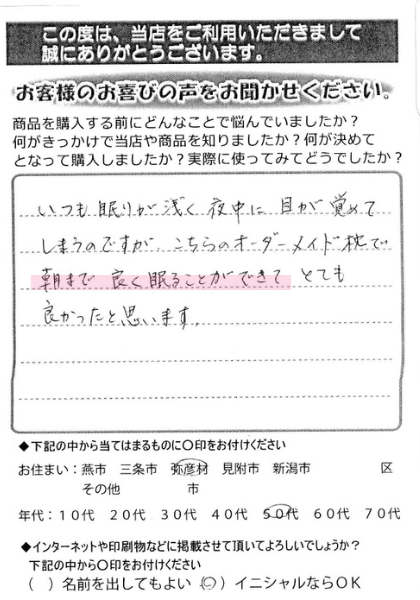 この度は、当店をご利用いただきまして
誠にありがとうございます。
お客様のお喜びの声をお聞かせください。
商品を購入する前にどんなことで悩んでいましたか？
何がきっかけで当店や商品を知りましたか？何が決めて
となって購入しましたか？実際に使ってみてどうでしたか？
いつも眠りが浅く夜中に目が覚めて
しまうのですが、こちらのオーダーメイド枕で
朝まで良く眠ることができてとても
良かったと思います。
◆下記の中から当てはまるものに〇印をお付けください
お住まい：燕市　三条市　弥彦村　見附市　新潟市　　　　区
その他　　　　市
年代：１０代　２０代　３０代　４０代　５０代　６０代　７０代
◆インターネットや印刷物などに掲載させて頂いてよろしいでしょうか？
下記の中から〇印をお付けください
（　）名前を出してもよい（〇）イニシャルならＯＫ